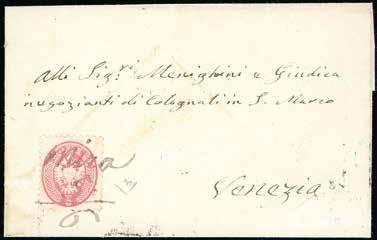 Alli Sigri Menighini e Giudica
negozianti di Colognali in S. Marco
Mira
Venezia